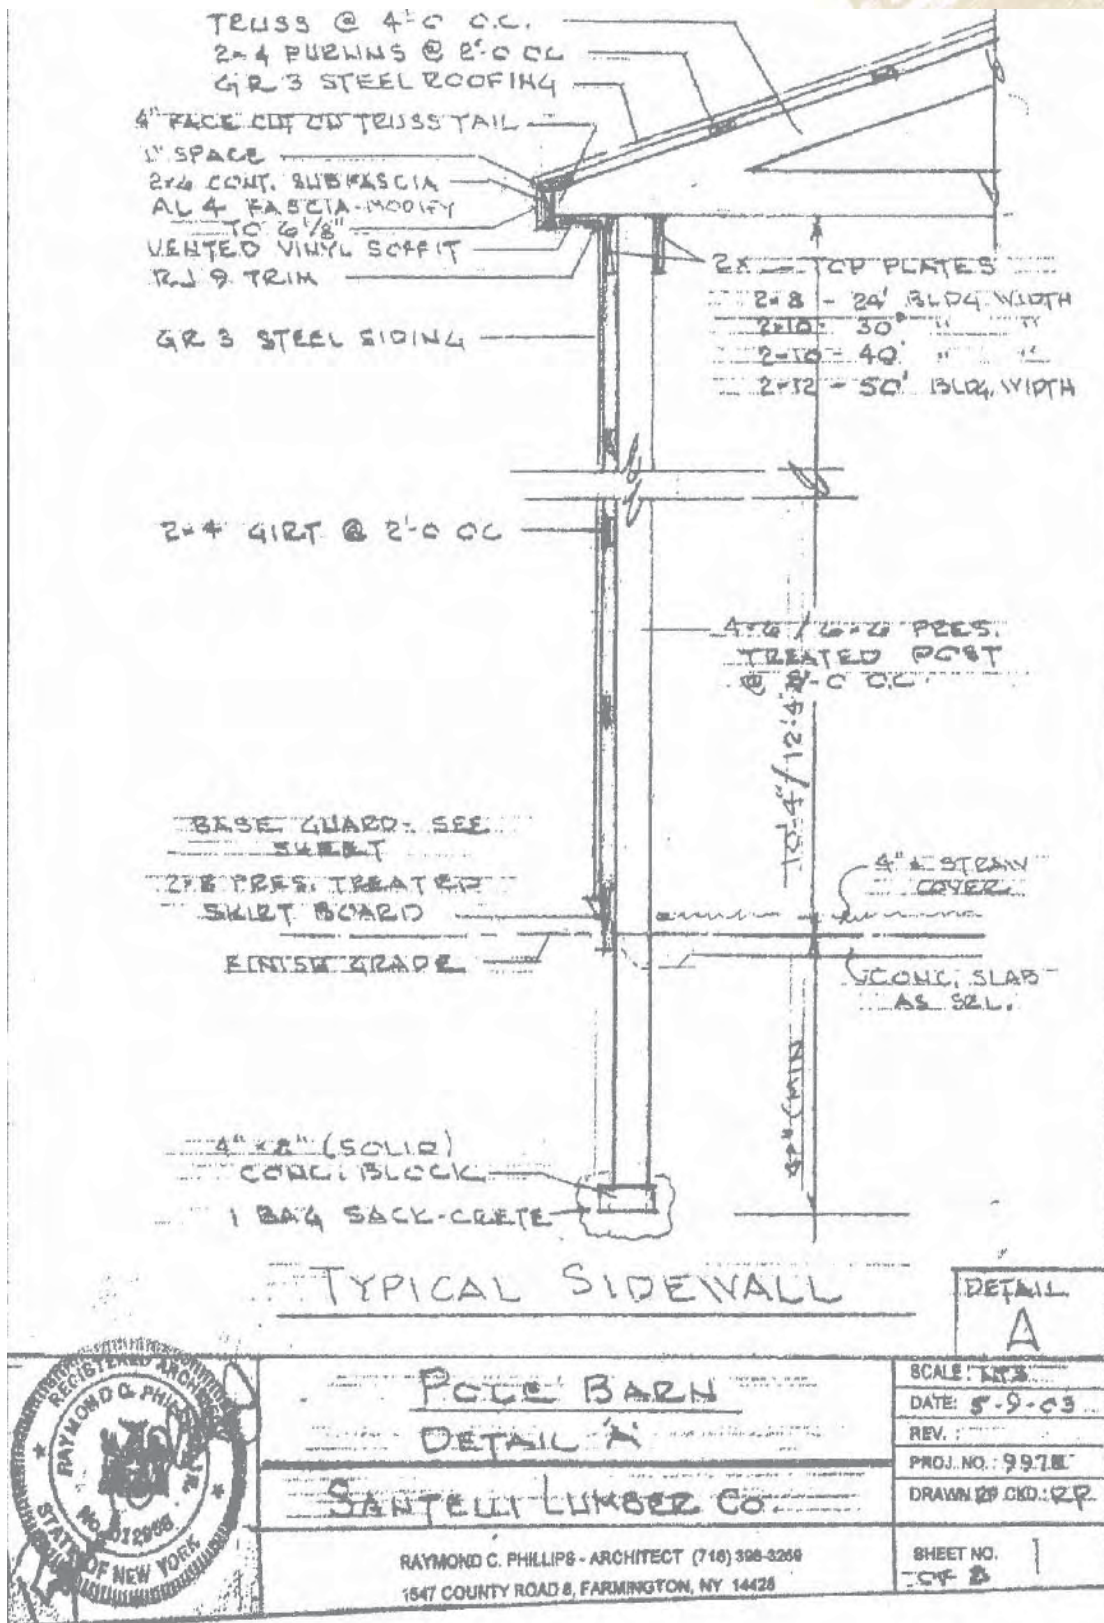 TRUSS @ 4'-0 O.C.
2x4 PURLINS @ 2'-0 OC
GR 3 STEEL ROOFING
4" FACE CUT ON TRUSS TAIL
1" SPACE
2x6 CONT. SUBFASCIA
AL 4 FASCIA-MODIFY
TO 6 1/8"
VENTED VINYL SOFFIT
RJ 9 TRIM
2x TOP PLATES
2x8 - 24' BLDG WIDTH
2x10 - 30' " "
2-10 - 40' " "
2-12 - 50' BLDG, WIDTH
GR 3 STEEL SIDING
2x4 GIRT @ 2'-0 OC
4x6 / 6x6 PRES.
TREATED POST
@ 8'-0 O.C.
10'-4"/12'-4"
BASE GUARD - SEE
SHEET
2x8 PRES. TREATED
SKIRT BOARD
FINISH GRADE
4" ± STRAW
COVER
CONC. SLAB
AS SEL.
MIN
4" x 8" (SOLID)
CONC. BLOCK
1 BAG SACK-CRETE
TYPICAL SIDEWALL
DETAIL
A
REGISTERED ARCHITECT
RAYMOND C. PHILLIPS JR.
STATE OF NEW YORK
POLE BARN
DETAIL 'A'
SANTELLI LUMBER CO.
RAYMOND C. PHILLIPS - ARCHITECT (716) 398-3269
1547 COUNTY ROAD 8, FARMINGTON, NY 14425
SCALE: NTS
DATE: 5-9-03
REV.:
PROJ. NO.: 9978
DRAWN RP CKD.: RP
SHEET NO. 1
OF 8